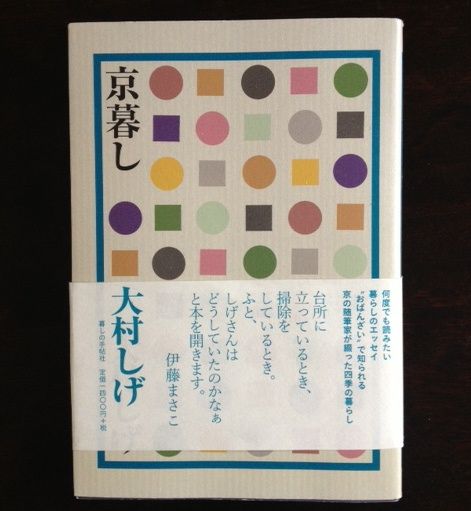 京暮し
何度でも読みたい
暮らしのエッセイ
“おばんざい”で知られる
京の随筆家が綴った四季の暮らし
台所に
立っているとき、
掃除を
しているとき。
ふと、
しげさんは
どうしていたのかなぁ
と本を開きます。
伊藤まさこ
大村しげ
暮しの手帖社 定価一六〇〇円+税